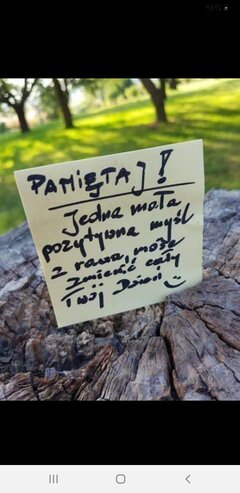 56%
PAMIĘTAJ!
Jedna mała
pozytywna myśl
z rana, może
zmienić cały
Twój Dzień